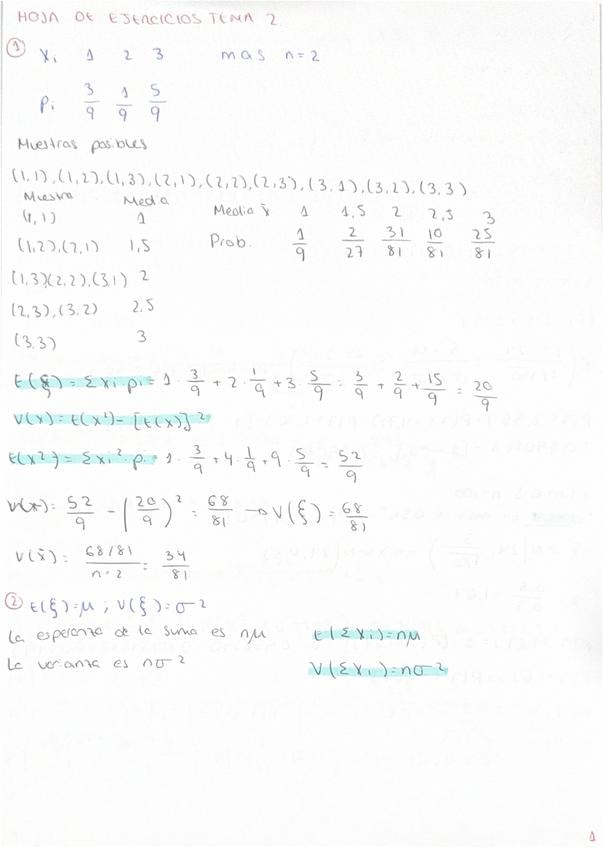 HOJA DE EJERCICIOS TEMA 2
① Xi 1 2 3 mas n=2
Pi 3/9 1/9 5/9
Muestras posibles
(1,1),(1,2),(1,3),(2,1),(2,2),(2,3),(3,1),(3,2),(3,3)
Muestra Media
(1,1) 1
(1,2),(2,1) 1,5
(1,3)(2,2),(3,1) 2
(2,3),(3,2) 2,5
(3,3) 3
Media x̄ 1 1,5 2 2,5 3
Prob. 1/9 2/27 31/81 10/81 25/81
E(ξ)=Σxi pi=1·3/9+2·1/9+3·5/9=3/9+2/9+15/9=20/9
V(x)=E(x²)-[E(x)]²
E(x²)=Σxi²·pi=1·3/9+4·1/9+9·5/9=52/9
V(x)=52/9-(20/9)²=68/81→V(ξ)=68/81
V(x̄)=68/81/n=2=34/81
② E(ξ)=μ; V(ξ)=σ²
La esperanza de la suma es nμ E(Σxi)=nμ
La varianza es nσ² V(Σxi)=nσ²
1